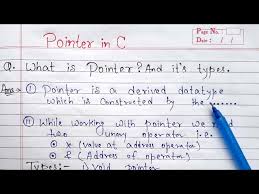 Pointer in C
Page No.
Date: / /
Q. What is Pointer? And it's types.
Ans → ① Pointer is a derived datatype
which is constructed by the .......
② While working with pointer we need
two unary operator i.e.
⊙ * (value at address operator)
⊙ & (Address of operator)
Types: 1) Void pointer